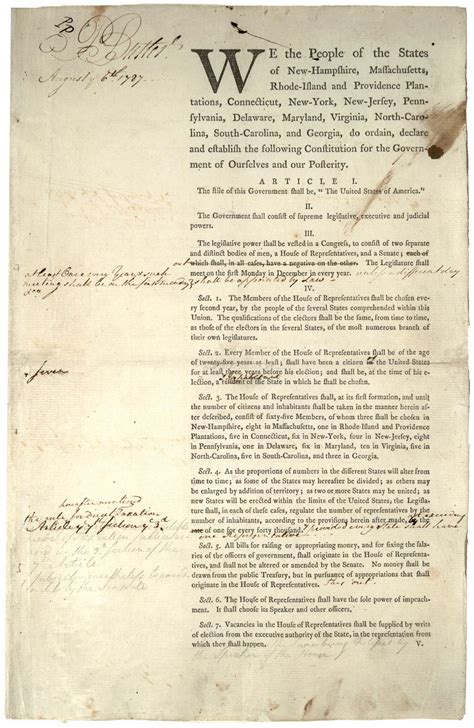 P. Butler
August 6th 1787.
WE the People of the States
of New-Hampſhire, Maſſachuſetts,
Rhode-Iſland and Providence Plan-
tations, Connecticut, New-York, New-Jerſey, Penn-
ſylvania, Delaware, Maryland, Virginia, North-Caro-
lina, South-Carolina, and Georgia, do ordain, declare
and eſtabliſh the following Conſtitution for the Govern-
ment of Ourſelves and our Poſterity.
ARTICLE I.
The ſtile of this Government ſhall be, "The United States of America."
II.
The Government ſhall conſiſt of ſupreme legiſlative, executive and judicial
powers.
III.
The legiſlative power ſhall be veſted in a Congreſs, to conſiſt of two ſeparate
and diſtinct bodies of men, a Houſe of Repreſentatives, and a Senate; each of
which ſhall, in all caſes, have a negative on the other. The Legiſlature ſhall
meet on the firſt Monday in December in every year. until a different day
at least Once every Year & such
meeting shall be on the first monday
shall be appointed by Law
IV.
Sect. 1. The Members of the Houſe of Repreſentatives ſhall be choſen every
ſecond year, by the people of the ſeveral States comprehended within this
Union. The qualifications of the electors ſhall be the ſame, from time to time,
as thoſe of the electors in the ſeveral States, of the moſt numerous branch of
their own legiſlatures.
Sect. 2. Every Member of the Houſe of Repreſentatives ſhall be of the age
of twenty-five years at leaſt; ſhall have been a citizen of the United States
seven
for at leaſt three years before his election; and ſhall be, at the time of his e-
lection, a reſident of the State in which he ſhall be choſen.
Sect. 3. The Houſe of Repreſentatives ſhall, at its firſt formation, and until
the number of citizens and inhabitants ſhall be taken in the manner herein af-
ter deſcribed, conſiſt of ſixty-five Members, of whom three ſhall be choſen in
New-Hampſhire, eight in Maſſachuſetts, one in Rhode-Iſland and Providence
Plantations, five in Connecticut, ſix in New-York, four in New-Jerſey, eight
in Pennſylvania, one in Delaware, ſix in Maryland, ten in Virginia, five in
North-Carolina, five in South-Carolina, and three in Georgia.
Sect. 4. As the proportions of numbers in the different States will alter from
time to time; as ſome of the States may hereafter be divided; as others may
be enlarged by addition of territory; as two or more States may be united; as
new States will be erected within the limits of the United States, the Legiſla-
ture ſhall, in each of theſe caſes, regulate the number of repreſentatives by the
hereafter mentioned
number of inhabitants, according to the proviſions herein after made, at the
rate of one for every forty thouſand.
the rule for direct Taxation
Article 7 Section 3d
Sect. 5. All bills for raiſing or appropriating money, and for fixing the ſala-
ries of the officers of government, ſhall originate in the Houſe of Repreſenta-
tives, and ſhall not be altered or amended by the Senate. No money ſhall be
drawn from the public Treaſury, but in purſuance of appropriations that ſhall
originate in the Houſe of Repreſentatives.
Sect. 6. The Houſe of Repreſentatives ſhall have the ſole power of impeach-
ment. It ſhall chooſe its Speaker and other officers.
Sect. 7. Vacancies in the Houſe of Repreſentatives ſhall be ſupplied by writs
of election from the executive authority of the State, in the repreſentation from
which they ſhall happen.
V.